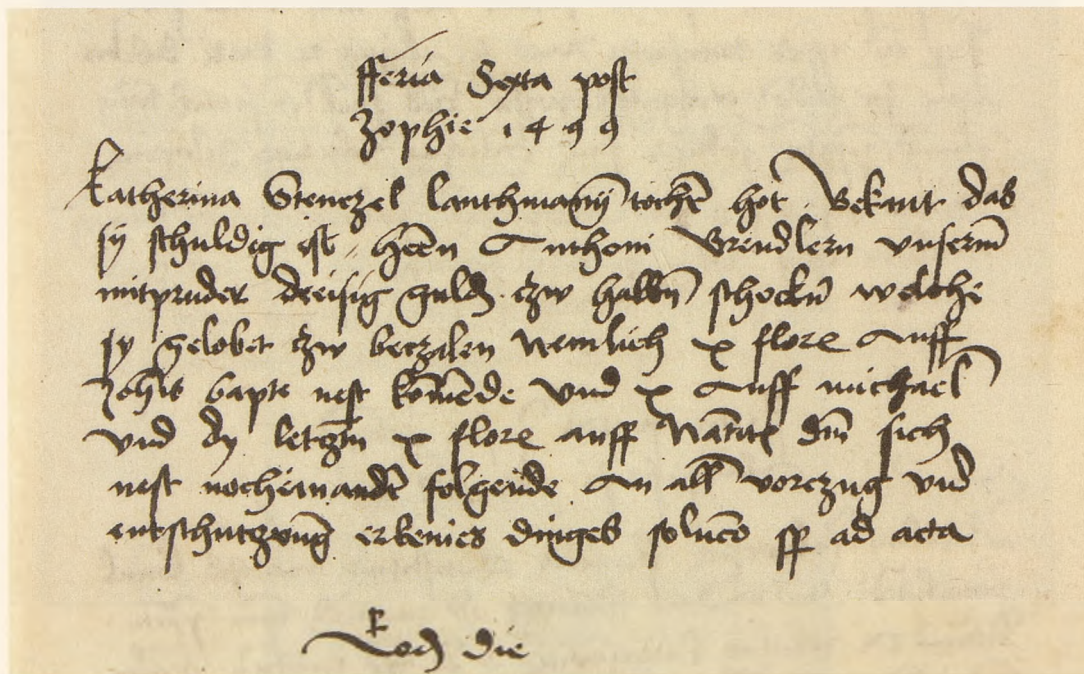 fferia Sexta post
Zophie 1499
Katherina Stenczel lanthmanÿ tocht̄ hot Bekant das
sÿ schuldig ist hern̄ Anthoni Grendlern vnserm̄
mitpruder dreisig guld̄ czw halbn̄ schockn̄ welche
sy gelobet czw beczalen Nemlich x flore Auff
Joh̄is bapt̄e nest kom̄ende vnd x Auff michael̄
vnd dy letczn̄ x flore auff Natīt dn̄i sich
nest nocheinand̄ folgende An all̄ vorczug vnd
entschutzunḡ erkenies dinges solūco sp̄ ad acta
Eod̄ die